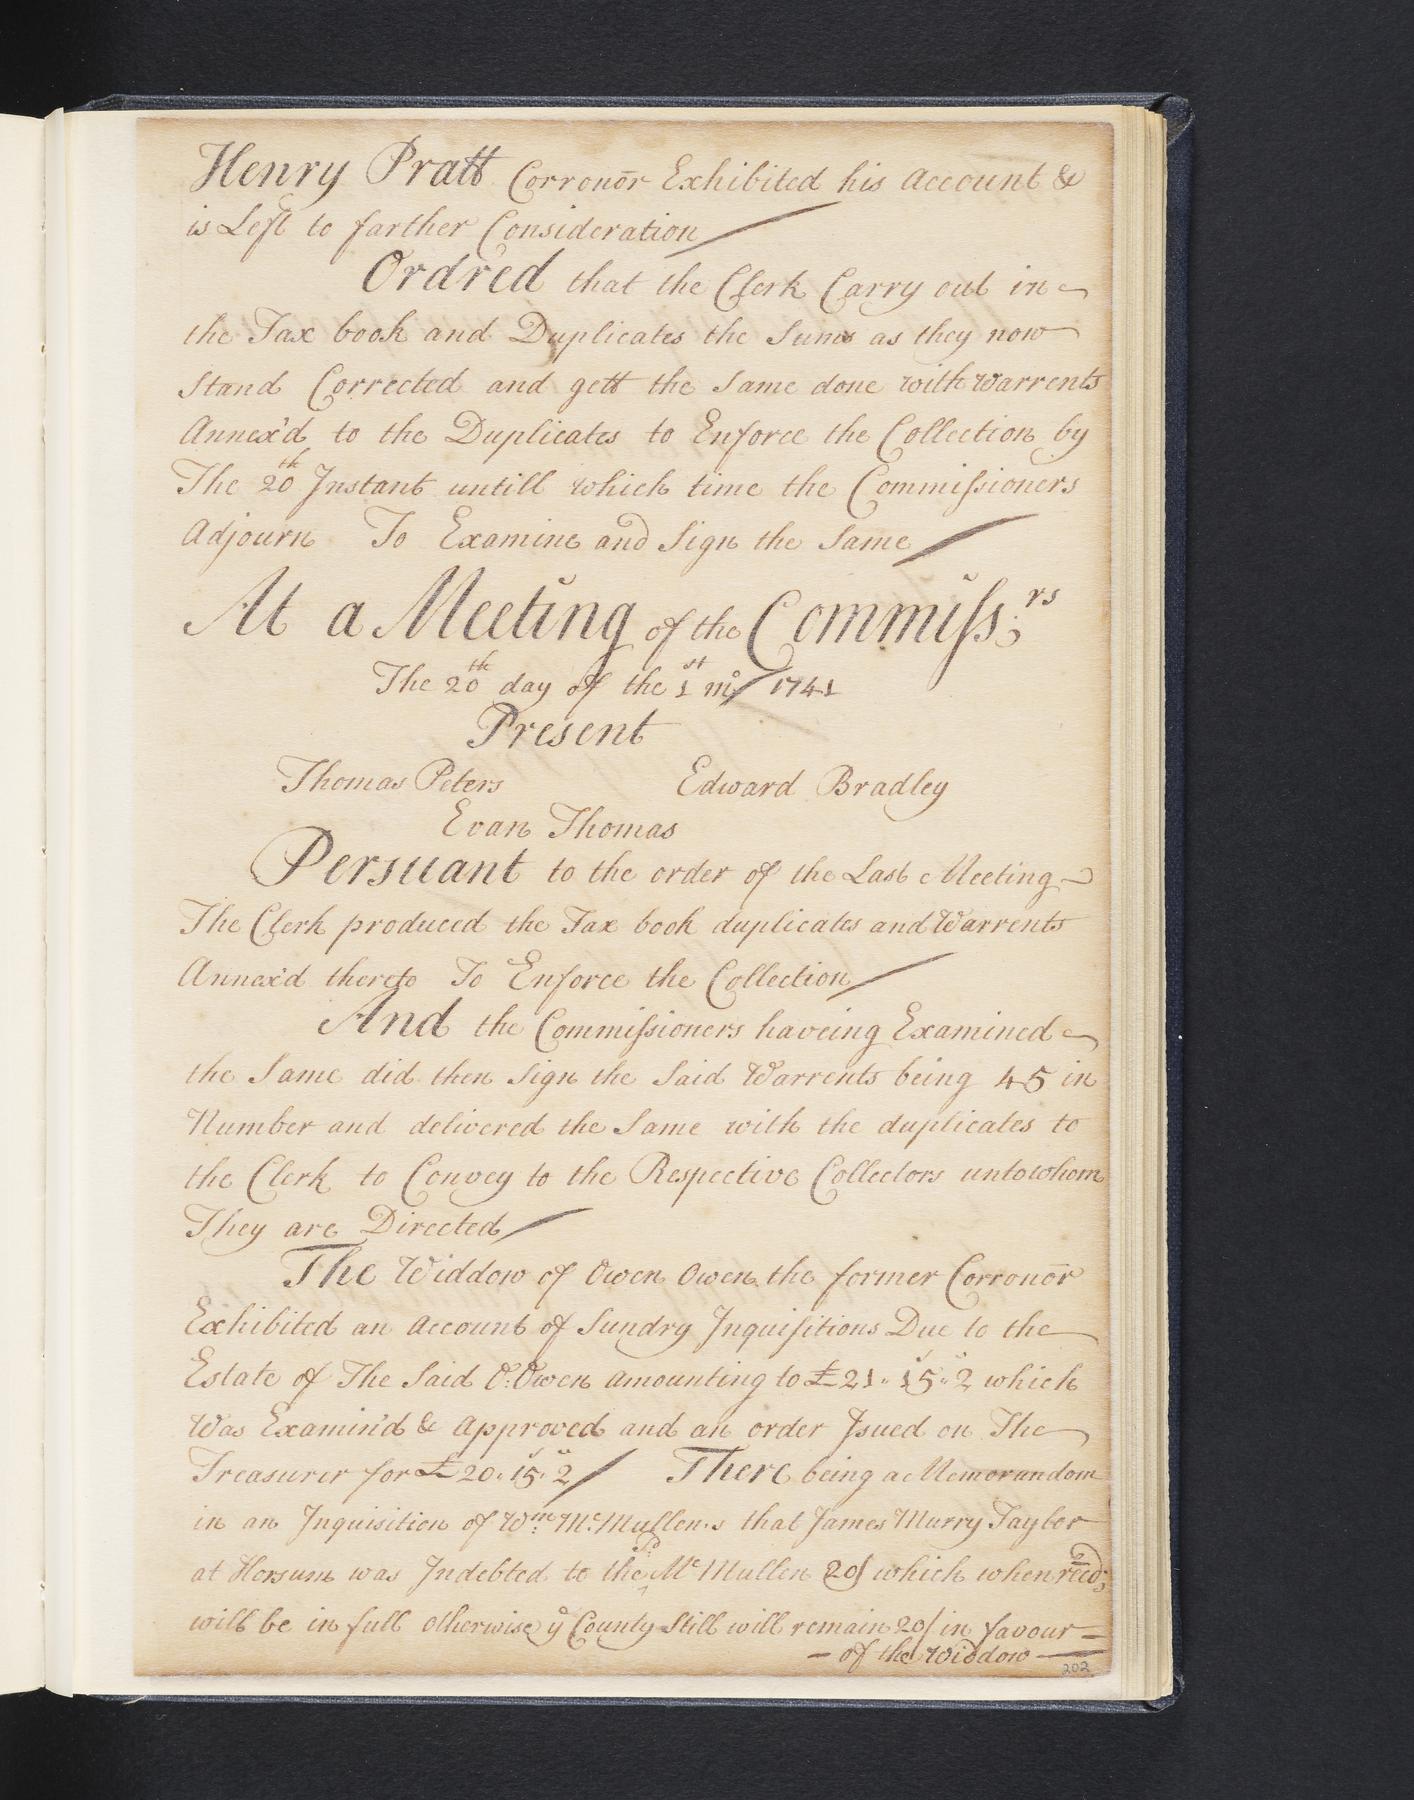 Henry Pratt Corronor Exhibited his Account &
is Left to farther Consideration
Ordred that the Clerk Carry out in
the Tax book and Duplicates the Sums as they now
Stand Corrected and gett the Same done with Warrents
Annex'd to the Duplicates to Enforce the Collection by
The 20th Instant untill which time the Commissioners
Adjourn To Examine and Sign the Same
At a Meeting of the Commissrs
The 20th day of the 1st mo/ 1741
Present
Thomas Peters Edward Bradley
Evan Thomas
Persuant to the order of the Last Meeting
The Clerk produced the Tax book duplicates and Warrents
Annex'd thereto To Enforce the Collection
And the Commissioners haveing Examined
the Same did then Sign the Said Warrents being 45 in
Number and delivered the Same with the duplicates to
the Clerk to Convey to the Respective Collectors unto whom
They are Directed
The Widdow of Owen Owen the former Corronor
Exhibited an Account of Sundry Inquisitions Due to the
Estate of The Said O: Owen amounting to £21"15"2 which
Was Examin'd & approved and an order Isued on The
Treasurer for £20"15"2 There being a Memorandom
in an Inquisition of Wm: Mc:Mullen's that James Murry Taylor
at Horsum was Indebted to the Sd McMullen 20/ which when recd;
will be in full otherwise ye County Still will remain 20/ in favour
of the Widdow
202